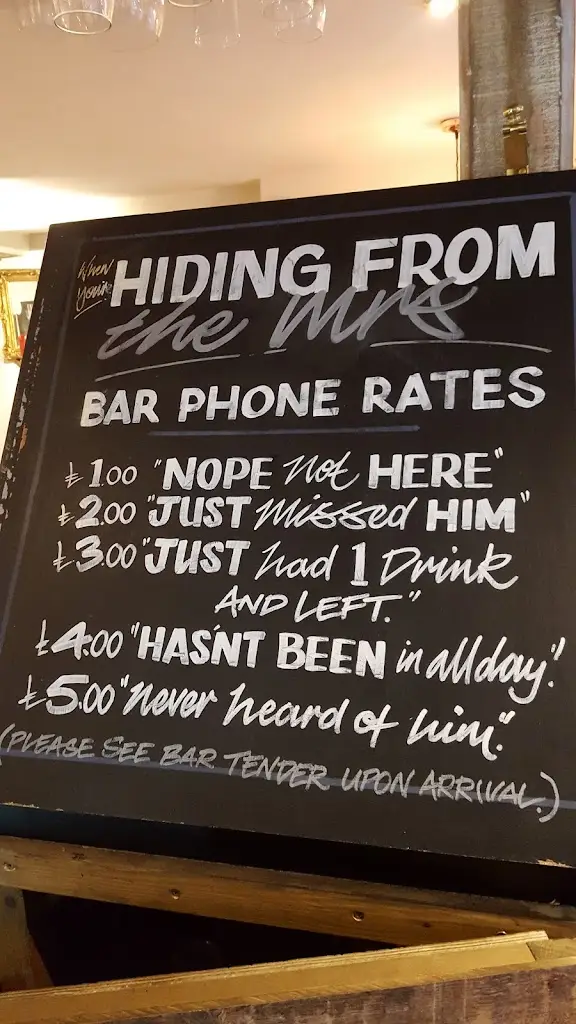 When
You're HIDING FROM
the Mrs
BAR PHONE RATES
£1.00 "NOPE Not HERE"
£2.00 "JUST Missed HIM"
£3.00 "JUST had 1 Drink
AND LEFT."
£4.00 "HAS'NT BEEN in all day."!
£5.00 "never heard of him."
(PLEASE SEE BAR TENDER UPON ARRIVAL.)